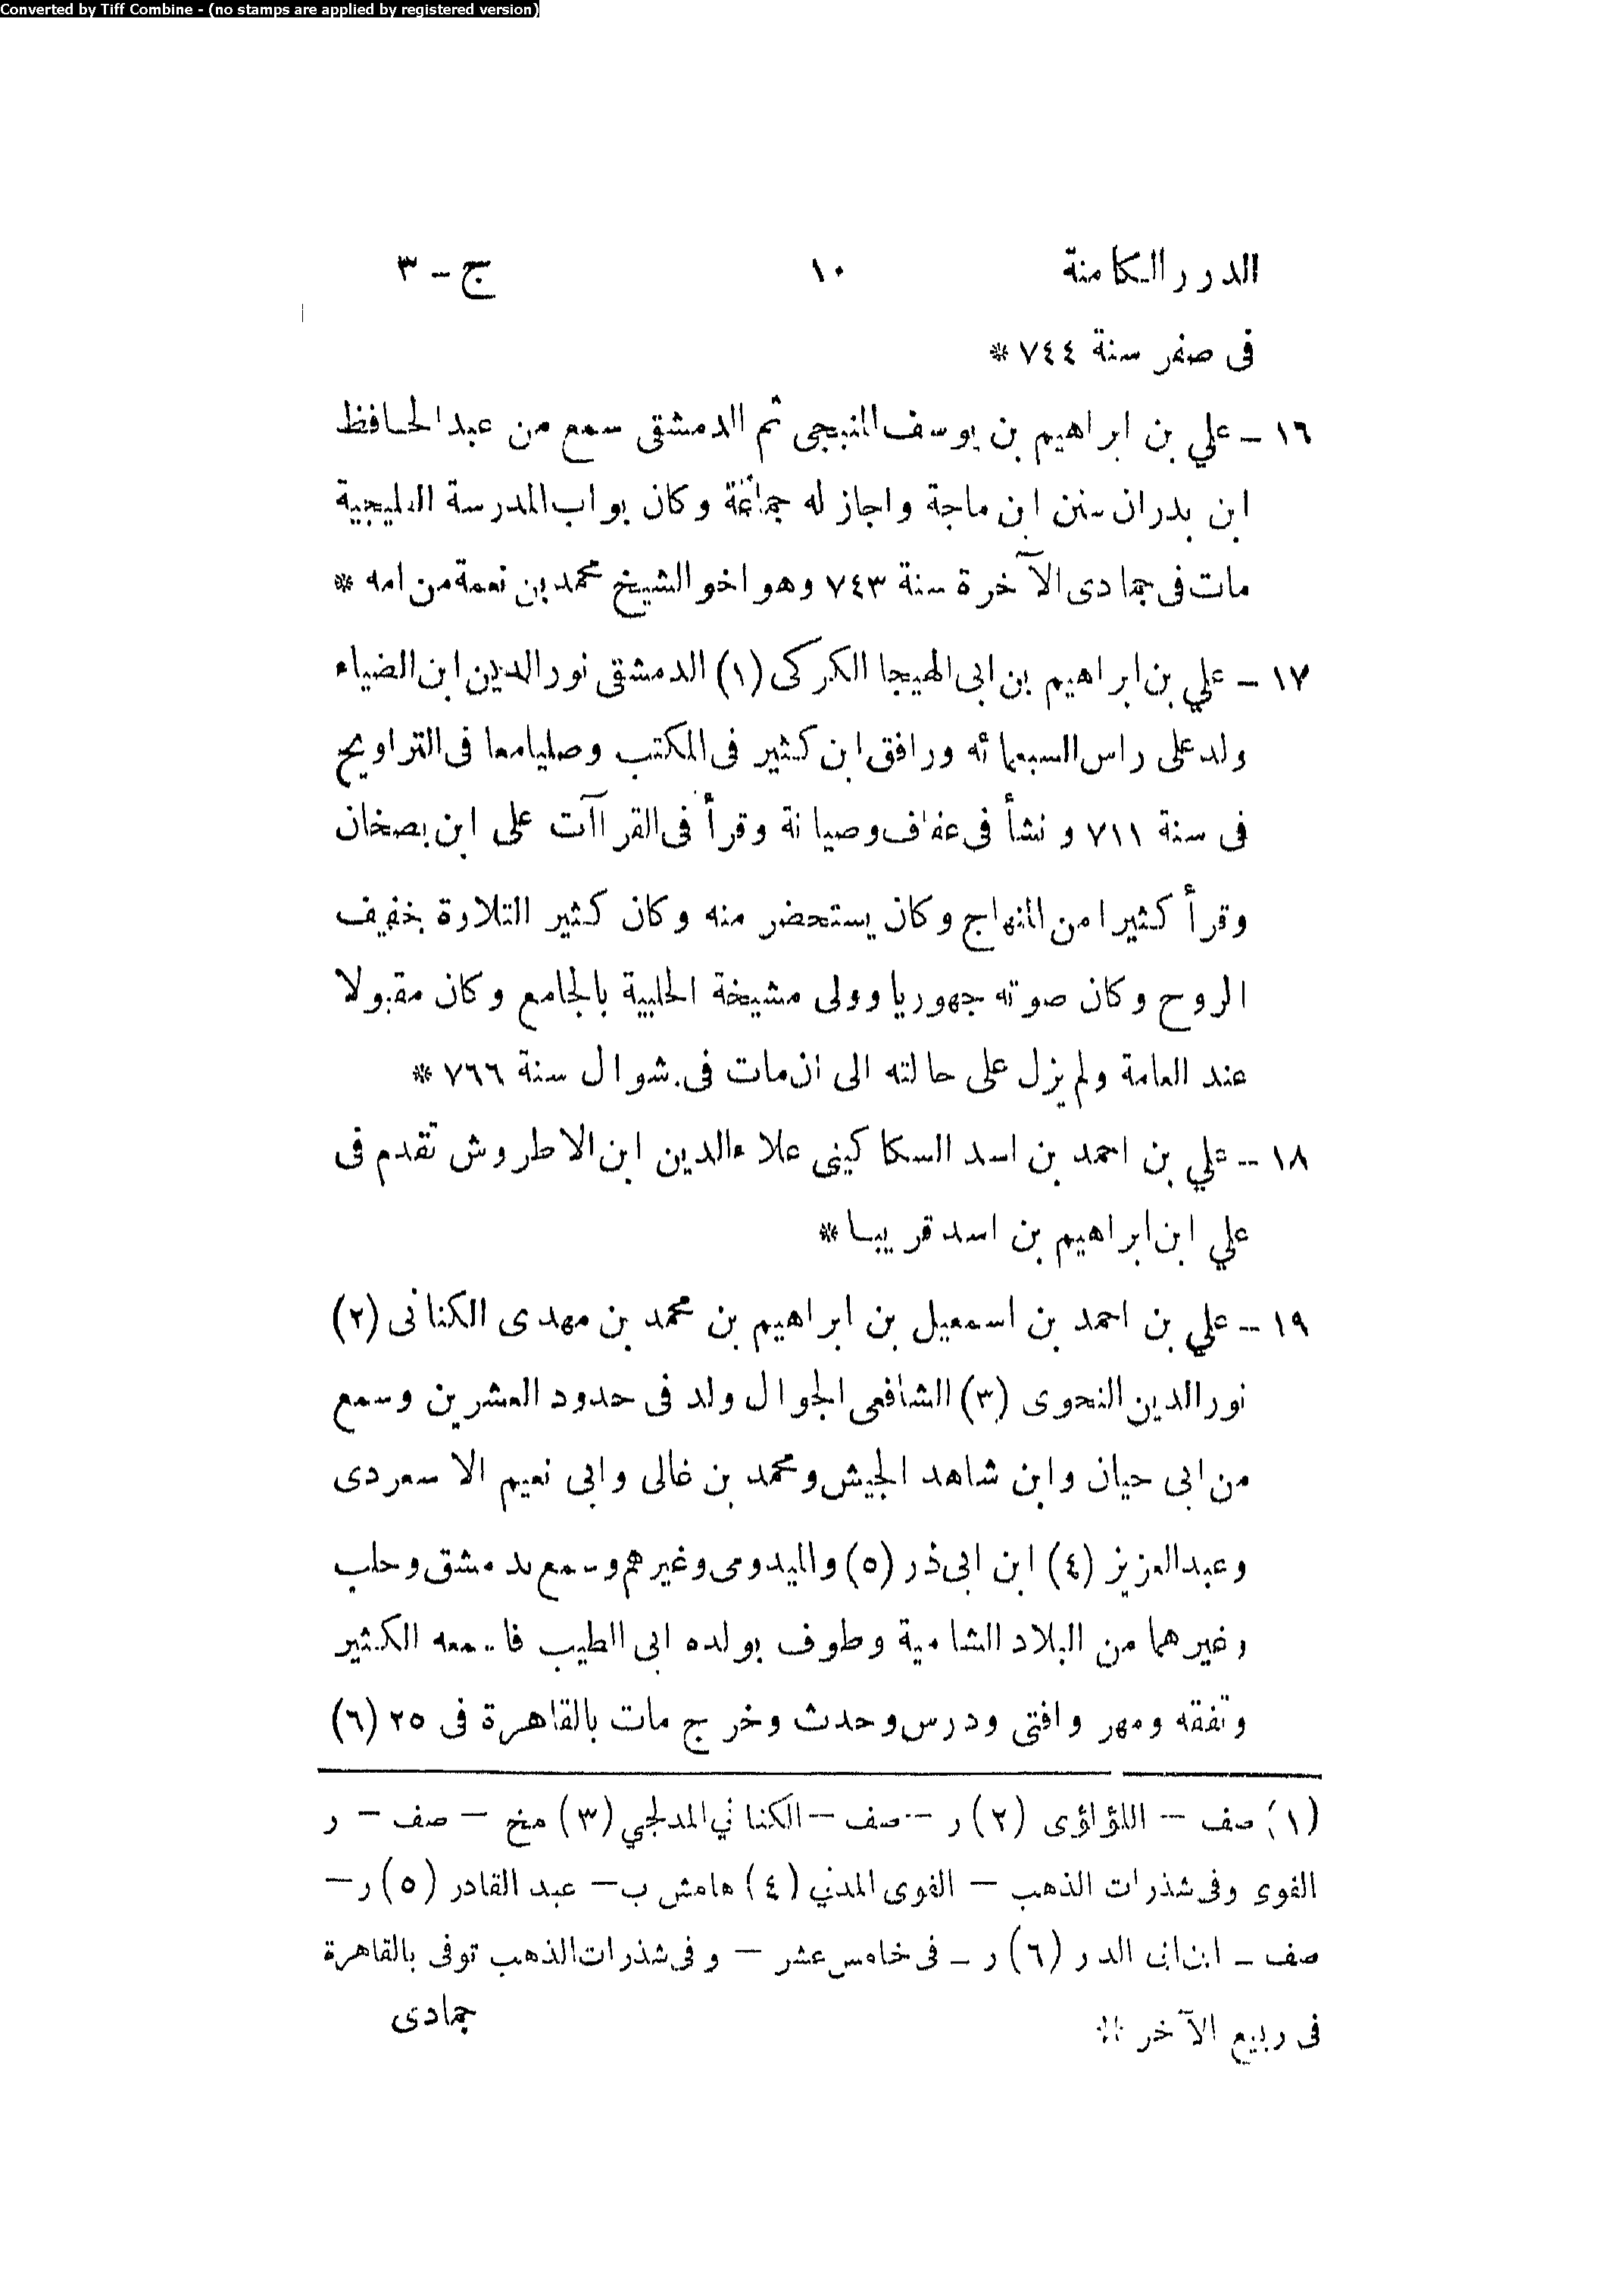 Converted by Tiff Combine - (no stamps are applied by registered version)
الدرر الكامنة ١٠ ج - ٣
فى صفر سنة ٧٤٤ *
١٦ - علي بن ابراهيم بن يوسف المنبجى ثم الدمشقى سمع من عبد الحافظ
ابن بدران سنن ابن ماجة واجاز له جماعة وكان بواب المدرسة القليجية
مات فى جمادى الآخرة سنة ٧٤٣ وهو اخو الشيخ محمد بن نعمة من امه *
١٧ - علي بن ابراهيم بن ابى الهيجا الكركى (١) الدمشقى نور الدين ابن الضياء
ولد على راس السبعمائه ورافق ابن كثير فى المكتب وصليا معا فى التراويح
فى سنة ٧١١ ونشأ فى عفاف وصيانة وقرأ فى القراآت على ابن بصخان
وقرأ كثيرا من المنهاج وكان يستحضر منه وكان كثير التلاوة بخفيف
الروح وكان صوته جهوريا وولى مشيخة الحلبية بالجامع وكان مقبولا
عند العامة ولم يزل على حالته الى ان مات فى شوال سنة ٧٦٦ *
١٨ - علي بن احمد بن اسد السكاكينى علاء الدين ابن الاطروش تقدم فى
علي ابن ابراهيم بن اسد قريبا *
١٩ - علي بن احمد بن اسمعيل بن ابراهيم بن محمد بن مهدى الكنانى (٢)
نور الدين النحوى (٣) الشافعى الجوال ولد فى حدود العشرين وسمع
من ابى حيان وابن شاهد الجيش ومحمد بن غالى وابى نعيم الاسعردى
وعبد العزيز (٤) ابن ابى ذر (٥) والميدومى وغيرهم وسمع بدمشق وحلب
وغيرهما من البلاد الشامية وطوف بولده ابى الطيب فاسمعه الكثير
وتفقه ومهر وافتى ودرس وحدث وخرج مات بالقاهرة فى ٢٥ (٦)
(١) صف - اللؤلؤى (٢) ر - صف - الكناني المدلجي (٣) منخ - صف - ر
الفوى وفى شذرات الذهب - الفوى المدني (٤) هامش ب - عبد القادر (٥) ر -
صف - ابن ابى الدر (٦) ر - فى خامس عشر - وفى شذرات الذهب توفى بالقاهرة
فى ربيع الآخر * جمادى